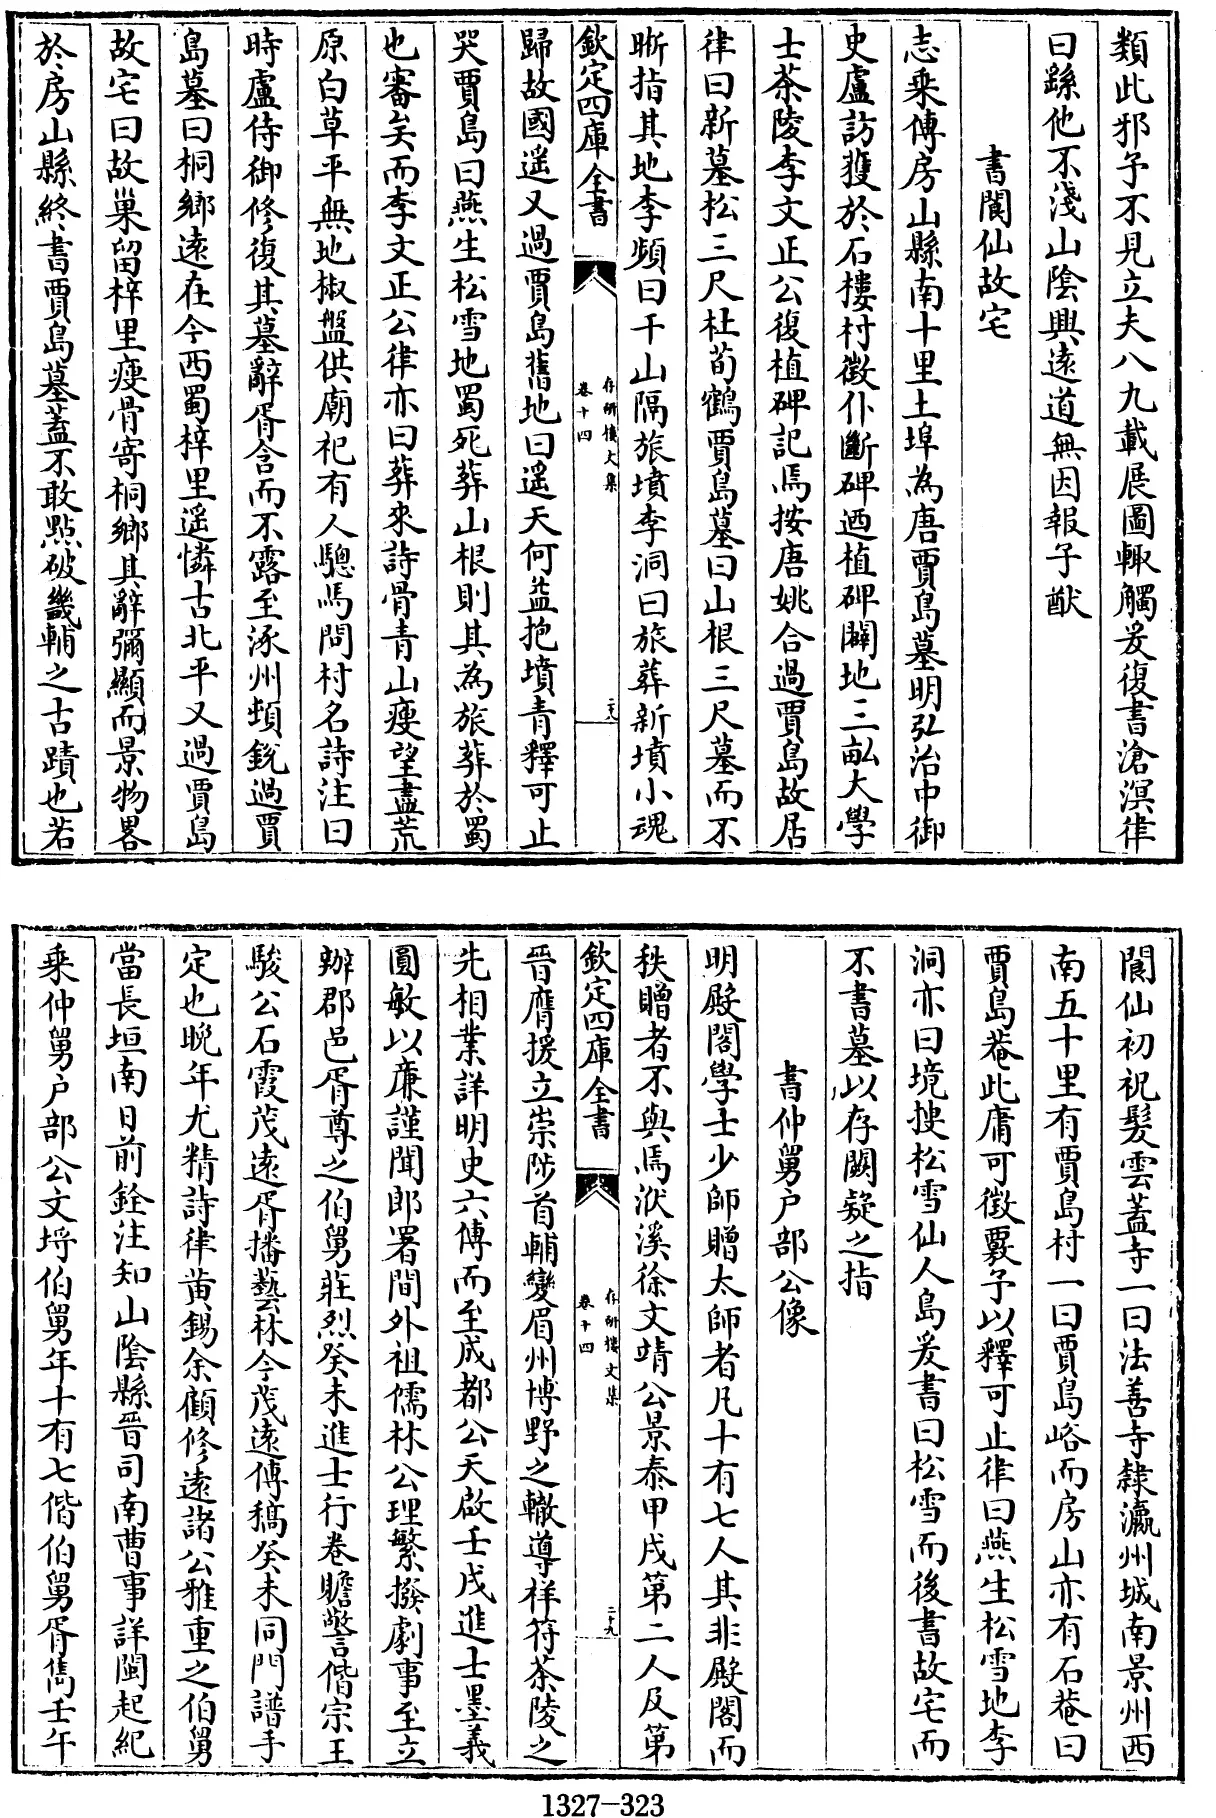 類此邪予不見立夫八九載展圖輒觸爰復書滄溟律
曰繇他不淺山陰興遠道無因報子猷
書閬仙故宅
志乘傳房山縣南十里土埠為唐賈島墓明弘治中御
史盧訪獲於石樓村徵仆斷碑迺植碑闢地三畝大學
士茶陵李文正公復植碑記焉按唐姚合過賈島故居
律曰新墓松三尺杜荀鶴賈島墓曰山根三尺墓而不
晰指其地李頻曰千山隔旅墳李洞曰旅葬新墳小魂
欽定四庫全書
存研樓文集
卷十四
二十八
歸故國遥又過賈島舊地曰遥天何益抱墳青釋可止
哭賈島曰燕生松雪地蜀死葬山根則其為旅葬於蜀
也審矣而李文正公律亦曰葬來詩骨青山瘦望盡荒
原白草平無地椒盤供廟祀有人驄馬問村名詩注曰
時盧侍御修復其墓辭胥含而不露至涿州頓銳過賈
島墓曰桐鄉遠在今西蜀梓里遥憐古北平又過賈島
故宅曰故巢留梓里瘦骨寄桐鄉其辭彌顯而景物畧
於房山縣終書賈島墓蓋不敢點破畿輔之古蹟也若
閬仙初祝髪雲蓋寺一曰法善寺隸瀛州城南景州西
南五十里有賈島村一曰賈島峪而房山亦有石菴曰
賈島菴此庸可徵覈予以釋可止律曰燕生松雪地李
洞亦曰境搜松雪仙人島爰書曰松雪而後書故宅而
不書墓以存闕疑之指
書仲舅户部公像
明殿閣學士少師贈太師者凡十有七人其非殿閣而
秩贈者不與焉洑溪徐文靖公景泰甲戌第二人及第
欽定四庫全書
存研樓文集
卷十四
二十九
晉膺援立崇陟首輔變眉州博野之轍導祥符茶陵之
先相業詳明史六傳而至成都公天啟壬戌進士墨義
圓敏以亷謹聞郎署間外祖儒林公理繁撥劇事至立
辦郡邑胥尊之伯舅莊烈癸未進士行卷贍警偕宗王
駿公石霞茂遠胥播藝林今茂遠傳稿癸未同門譜手
定也晚年尤精詩律黄錫余顧修遠諸公雅重之伯舅
當長垣南日前銓注知山陰縣晉司南曹事詳閩起紀
乘仲舅户部公文埒伯舅年十有七偕伯舅胥儁壬午
1327-323